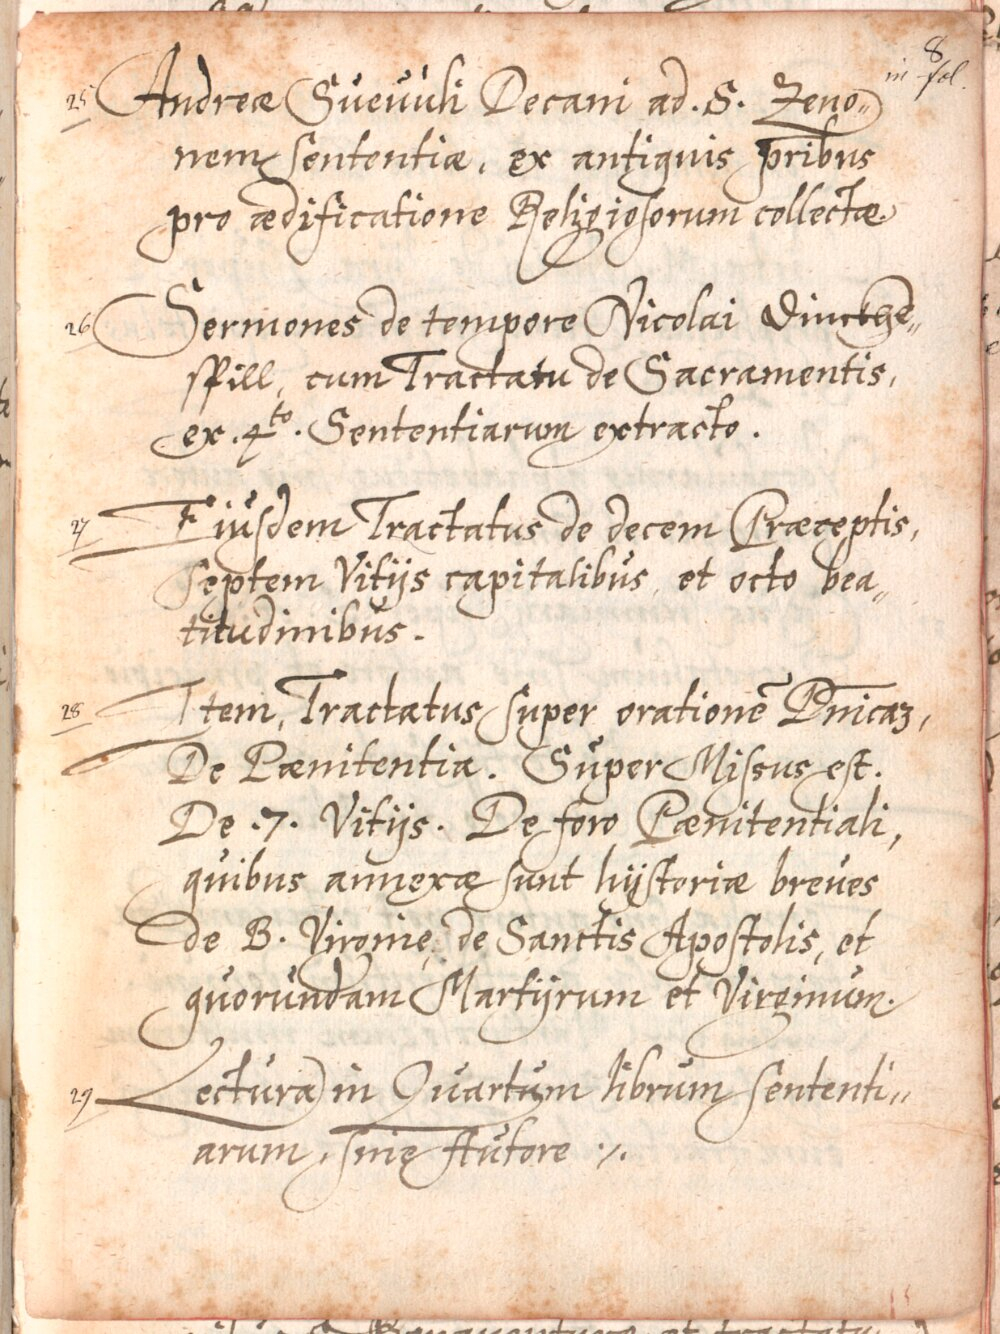 8
in fol.
25 Andreæ Suevuli Decani ad. S. Zeno„
nem sententiæ, ex antiquis pribus
pro ædificatione Religiosorum collectæ
26 Sermones de tempore Nicolai Dinckhe„
spill, cum Tractatu de Sacramentis,
ex .4to. Sententiarum extracto.
27 Eiusdem Tractatus de decem Præceptis,
septem Vitijs capitalibus, et octo bea„
titudinibus.
28 Item, Tractatus super orationē Dnicaʒ,
De Pænitentia. Super Missus est.
De .7. Vitijs. De foro Pænitentiali,
quibus annexæ sunt hijstoriæ breves
de B. Virgine, de Sanctis Apostolis, et
quorundam Martijrum et Virginum.
29 Lectura in Quartum librum sententi„
arum, sine Autore ./.